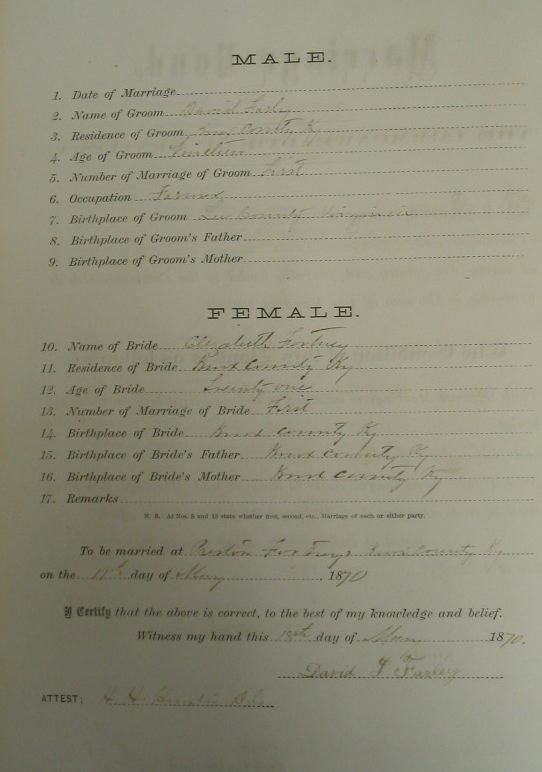 MALE.
1. Date of Marriage
2. Name of Groom David Farley
3. Residence of Groom Knox County Ky
4. Age of Groom
5. Number of Marriage of Groom first
6. Occupation Farmer
7. Birthplace of Groom Lee County Virginia
8. Birthplace of Groom's Father
9. Birthplace of Groom's Mother
FEMALE.
10. Name of Bride Elizabeth
11. Residence of Bride Knox County Ky
12. Age of Bride Twenty one
13. Number of Marriage of Bride First
14. Birthplace of Bride Knox County Ky
15. Birthplace of Bride's Father Knox County Ky
16. Birthplace of Bride's Mother Knox County Ky
17. Remarks
N. B. At Nos. 5 and 13 state whether first, second, etc., Marriage of each or either party.
To be married at Preston Knox County Ky
on the day of 1870
I Certify that the above is correct, to the best of my knowledge and belief.
Witness my hand this day of 1870.
David F Farley
ATTEST: H H